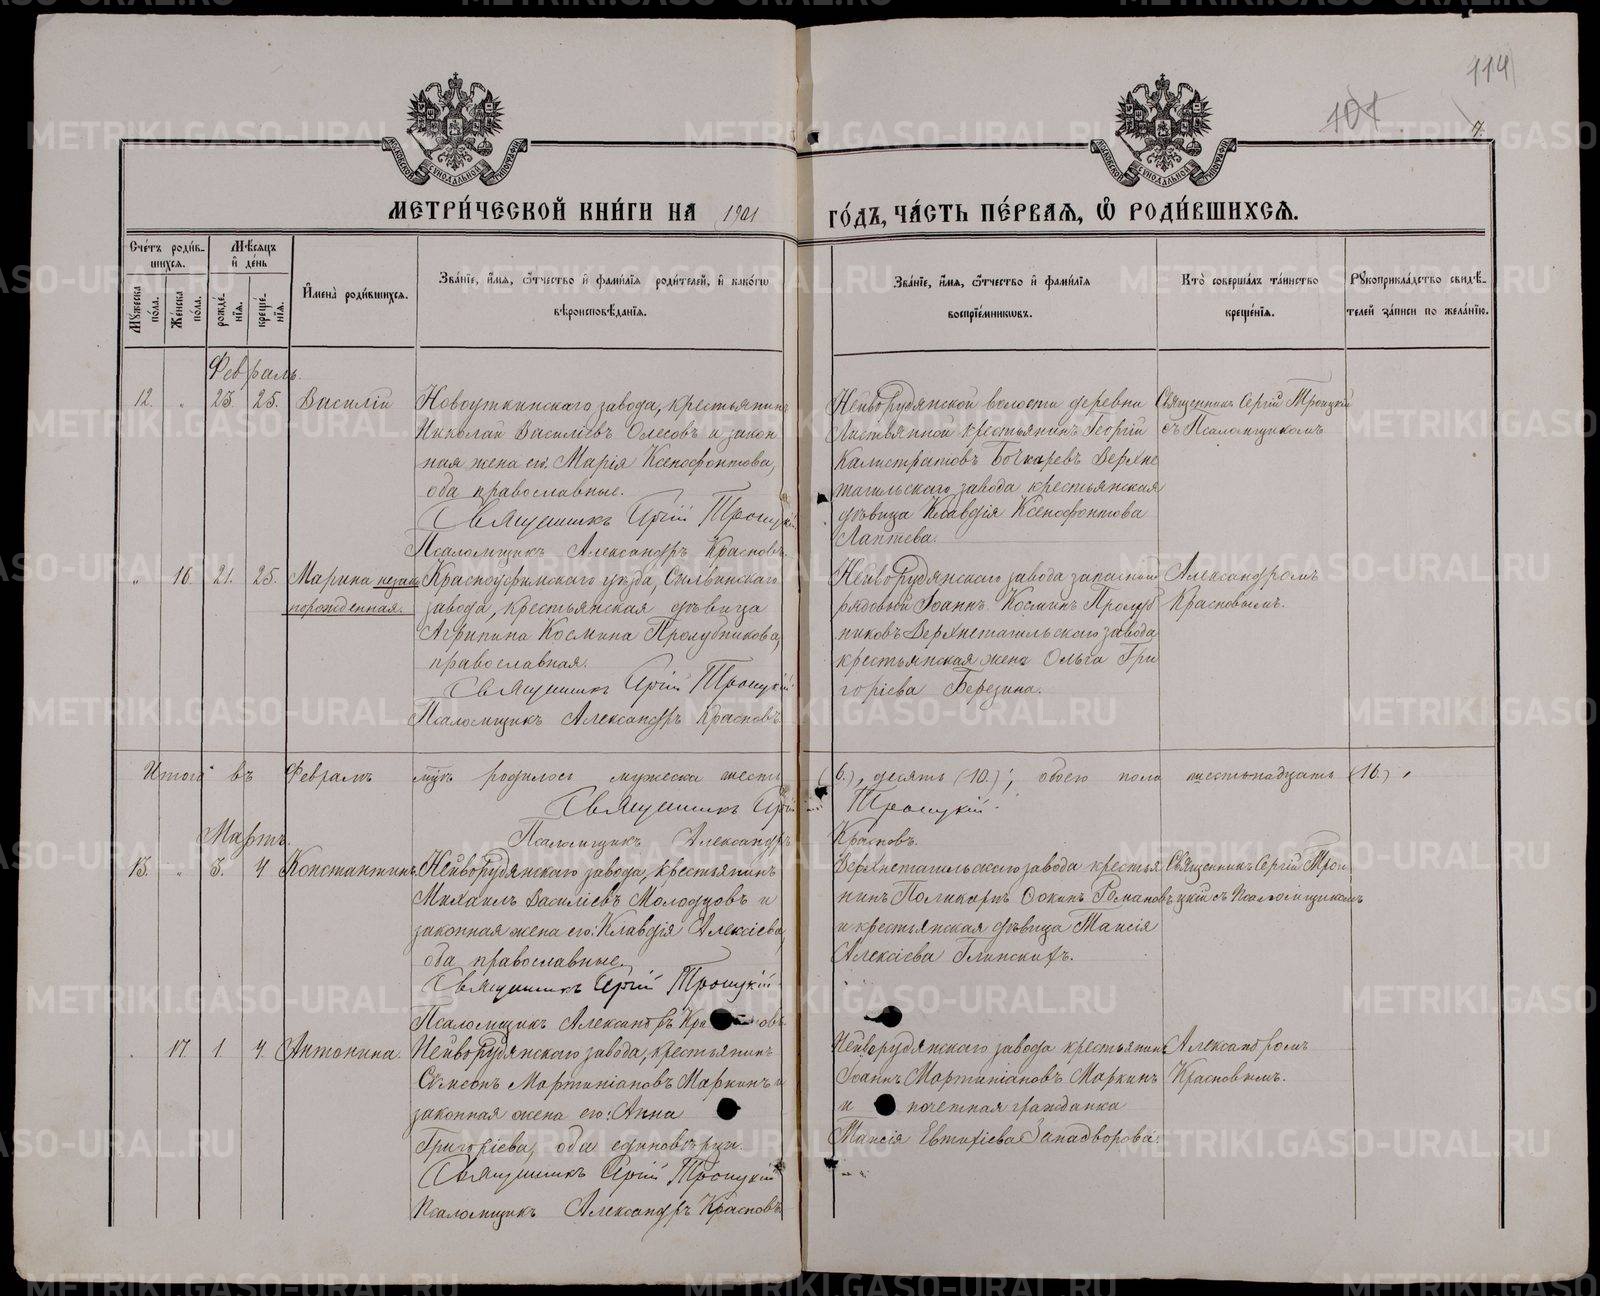 114
101
7.
МОСКОВСКОЙ СѴНОДАЛЬНОЙ ТИПОГРАФІИ
МОСКОВСКОЙ СѴНОДАЛЬНОЙ ТИПОГРАФІИ
МЕТРИ́ЧЕСКОЙ КНИ́ГИ НА 1901 ГО́ДЪ, ЧА́СТЬ ПЕ́РВАЯ, Ѽ РОДИ́ВШИХСЯ.
Сче́тъ роди́в-
шихся.
Мѣ́сяцъ
и́ де́нь
Мꙋ́жеска
по́ла.
Же́нска
по́ла.
рожде́-
нія.
креще́-
нія.
И҆мена̀ роди́вшихся.
Зва́ніе, и҆́мя, ѻ҆́тчество и҆ фами́лія роди́телей, и҆ како́гѡ
вѣроисповѣ́данія.
Зва́ніе, и҆́мя, ѻ҆́тчество и҆ фами́лія
воспріе́мниковъ.
Кто̀ соверша́лъ та́инство
креще́нія.
Рꙋкоприкла́дство свидѣ́-
телей за́писи по жела́нію.
Февраль.
12. " 23. 25. Василій
Новоуткинскаго завода, крестьянинъ
Николай Василіевъ Олесовъ и закон
ная жена его: Марія Ксенофонтова,
оба православные.
Священникъ Сергій Троицкій
Псаломщикъ Александръ Красновъ.
Нейворудянской волости деревни
Листвянной крестьянинъ Георгій
Калистратовъ Бочкаревъ Верхне
тагильскаго завода крестьянская
дѣвица Клавдія Ксенофонтова
Лаптева.
Священникъ Сергій Троицкій
съ Псаломщикомъ
" 16. 21. 25. Марина незако
порожденная.
Красноуфимскаго уѣзда, Сылвинскаго
завода, крестьянская дѣвица
Агрипина Космина Пролубникова,
православная.
Священникъ Сергій Троицкій
Псаломщикъ Александръ Красновъ.
Нейворудянскаго завода запасной
рядовой Іоаннъ Косминъ Пролуб
никовъ Верхнетагильскаго завода
крестьянская жена Ольга Гри
горіева Березина.
Александромъ
Красновымъ.
Итого въ Февралѣ мцѣ родилось мужеска шесть (6.), десять (10.); обоего пола шестьнадцать (16.).
Священникъ Сергій Троицкій.
Псаломщикъ Александръ Красновъ.
Мартъ.
13. " 3. 4 Константинъ
Нейворудянскаго завода, крестьянинъ
Михаилъ Василіевъ Молодцовъ и
законная жена его: Клавдія Алексіева
оба православные.
Священникъ Сергій Троицкій
Псаломщикъ Александръ Красновъ
Верхнетагильскаго завода крестья
нинъ Поликарпъ Фокинъ Романовъ
и крестьянская дѣвица Таисія
Алексіева Глинскихъ.
Священникъ Сергій Трои
цкій съ Псаломщикомъ
. 17 1. 4. Антонина.
Нейворудянскаго завода, крестьянинъ
Сѵмеонъ Мартиніановъ Маркинъ и
законная жена его: Анна
Григоріева, оба единовѣрцы.
Священникъ Сергій Троицкій
Псаломщикъ Александръ Красновъ
Нейворудянскаго завода крестьянинъ
Іоаннъ Мартиніановъ Маркинъ
и почетная гражданка
Таисія Евтихіева Западворова.
Александромъ
Красновымъ.
METRIKI.GASO-URAL.RU